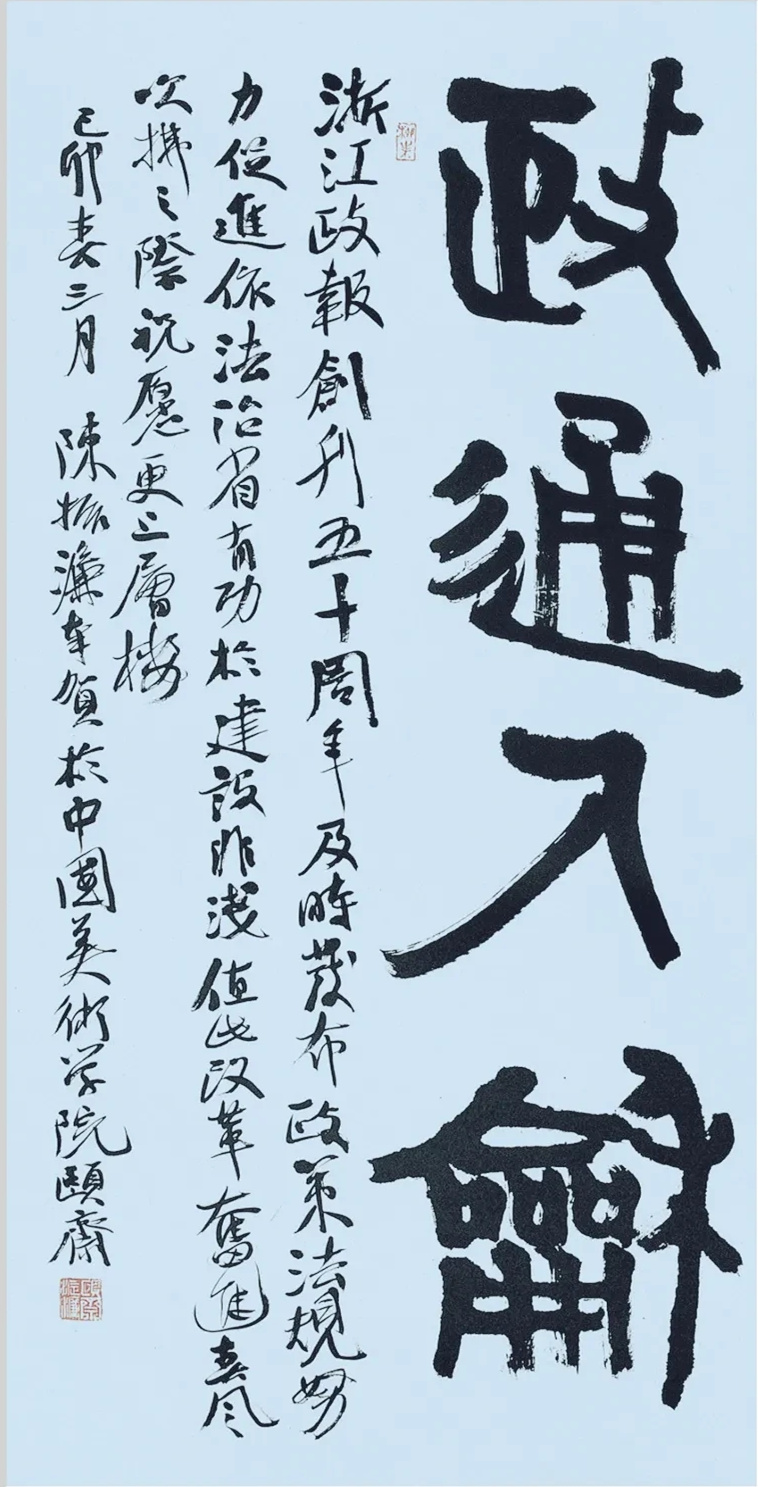 政通人龢
浙江政報創刊五十周年及時發布政策法規努
力促進依法治省有功於建設非淺值此改革奮進春风
吹拂之際祝愿更上層楼
己卯春三月 陳振濂奉賀於中國美術学院頤齋